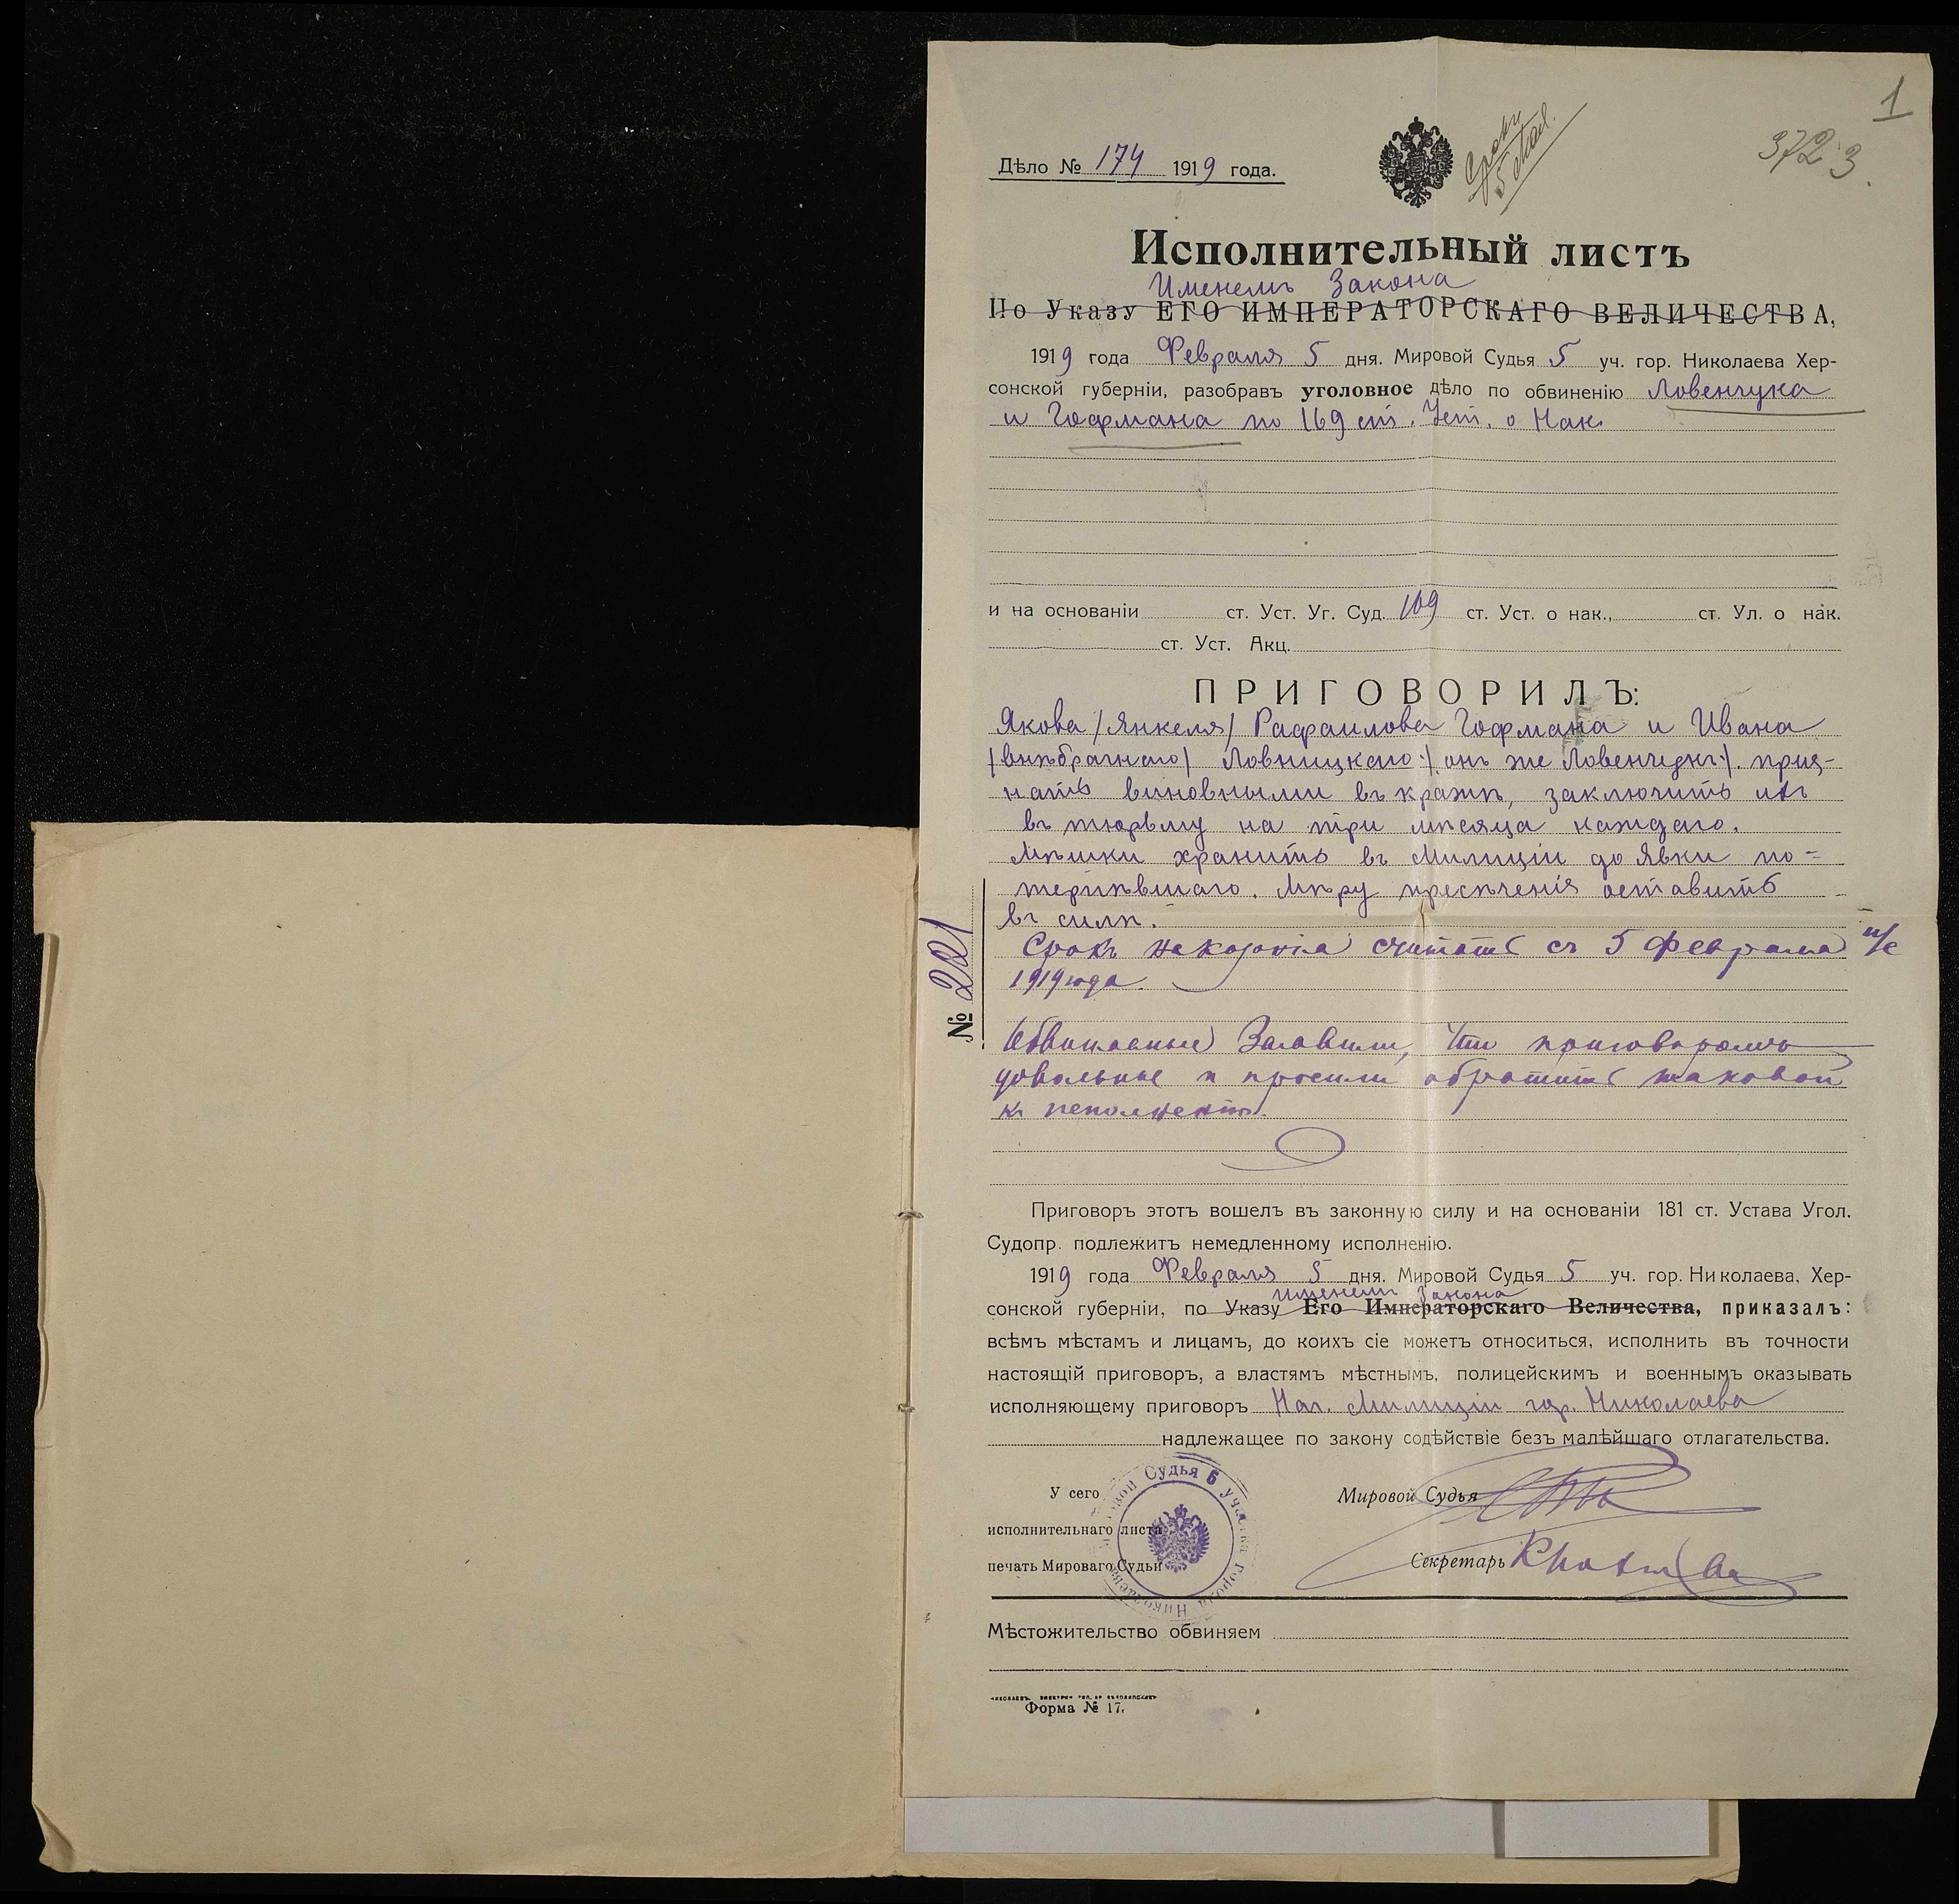 1
372 3.
Срокъ
5 Мая.
Дѣло № 174 1919 года.
Исполнительный листъ
Именемъ Закона
По Указу ЕГО ИМПЕРАТОРСКАГО ВЕЛИЧЕСТВА,
1919 года Февраля 5 дня. Мировой Судья 5 уч. гор. Николаева Хер-
сонской губерніи, разобравъ уголовное дѣло по обвиненію Ловенчука
и Гофмана по 169 ст. Уст. о Нак.
и на основаніи ст. Уст. Уг. Суд. 169 ст. Уст. о нак., ст. Ул. о нак.
ст. Уст. Акц.
ПРИГОВОРИЛЪ:
Якова /Янкеля/ Рафаилова Гофмана и Ивана
/внѣбрачнаго/ Ловницкаго :/. онъ же :/. приз-
нать виновными въ кражѣ, заключить ихъ
въ тюрьму на три мѣсяца каждаго.
Мѣшки хранить въ Милиціи до явки по=
терпѣвшаго. Мѣру пресѣченія оставить
въ силѣ.
Срокъ наказанія считать съ 5 Февраля н/с
1919 года.
Обвиняемые Заявили, что приговоромъ
довольные и просили обратить таковой
къ исполненію.
№ 221
Приговоръ этотъ вошелъ въ законную силу и на основаніи 181 ст. Устава Угол.
Судопр. подлежитъ немедленному исполненію.
1919 года Февраля 5 дня. Мировой Судья 5 уч. гор. Николаева, Хер-
именемъ Закона
сонской губерніи, по Указу Его Императорскаго Величества, приказалъ:
всѣмъ мѣстамъ и лицамъ, до коихъ сіе можетъ относиться, исполнить въ точности
настоящій приговоръ, а властямъ мѣстнымъ, полицейскимъ и военнымъ оказывать
исполняющему приговоръ Нач. Милиціи гор. Николаева
надлежащее по закону содѣйствіе безъ малѣйшаго отлагательства.
У сего
исполнительнаго листа
печать Мироваго Судьи
Мировой Судья 6 участка города Николаева
Мировой Судья
Секретарь
Мѣстожительство обвиняем
Форма № 17.